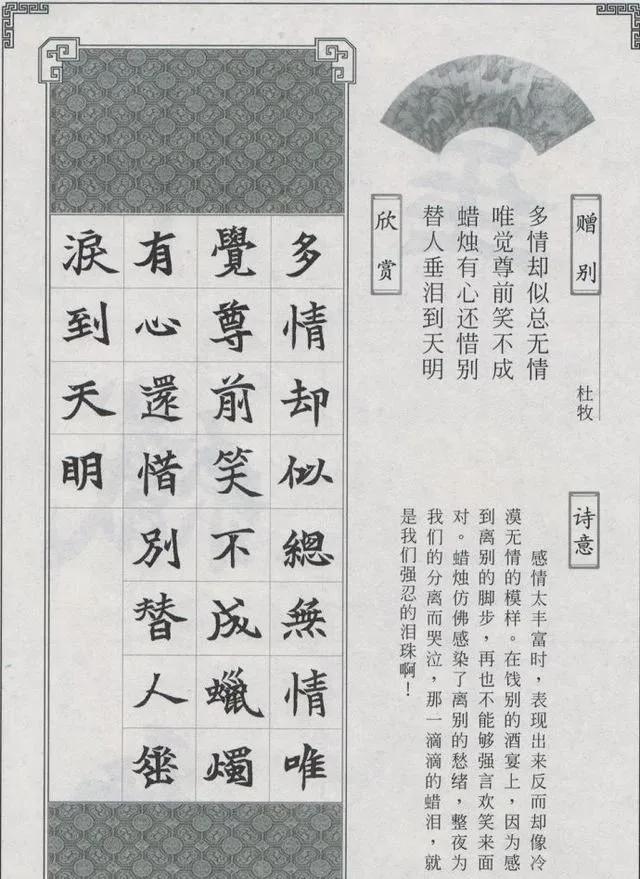 赠别
杜牧
多情却似总无情
唯觉尊前笑不成
蜡烛有心还惜别
替人垂泪到天明
欣赏
诗意
感情太丰富时，表现出来反而却像冷
漠无情的模样。在饯别的酒宴上，因为感
到离别的脚步，再也不能够强言欢笑来面
对。蜡烛仿佛感染了离别的愁绪，整夜为
我们的分离而哭泣，那一滴滴的蜡泪，就
是我们强忍的泪珠啊！
多情却似總無情唯
覺尊前笑不成蠟燭
有心還惜別替人垂
淚到天明